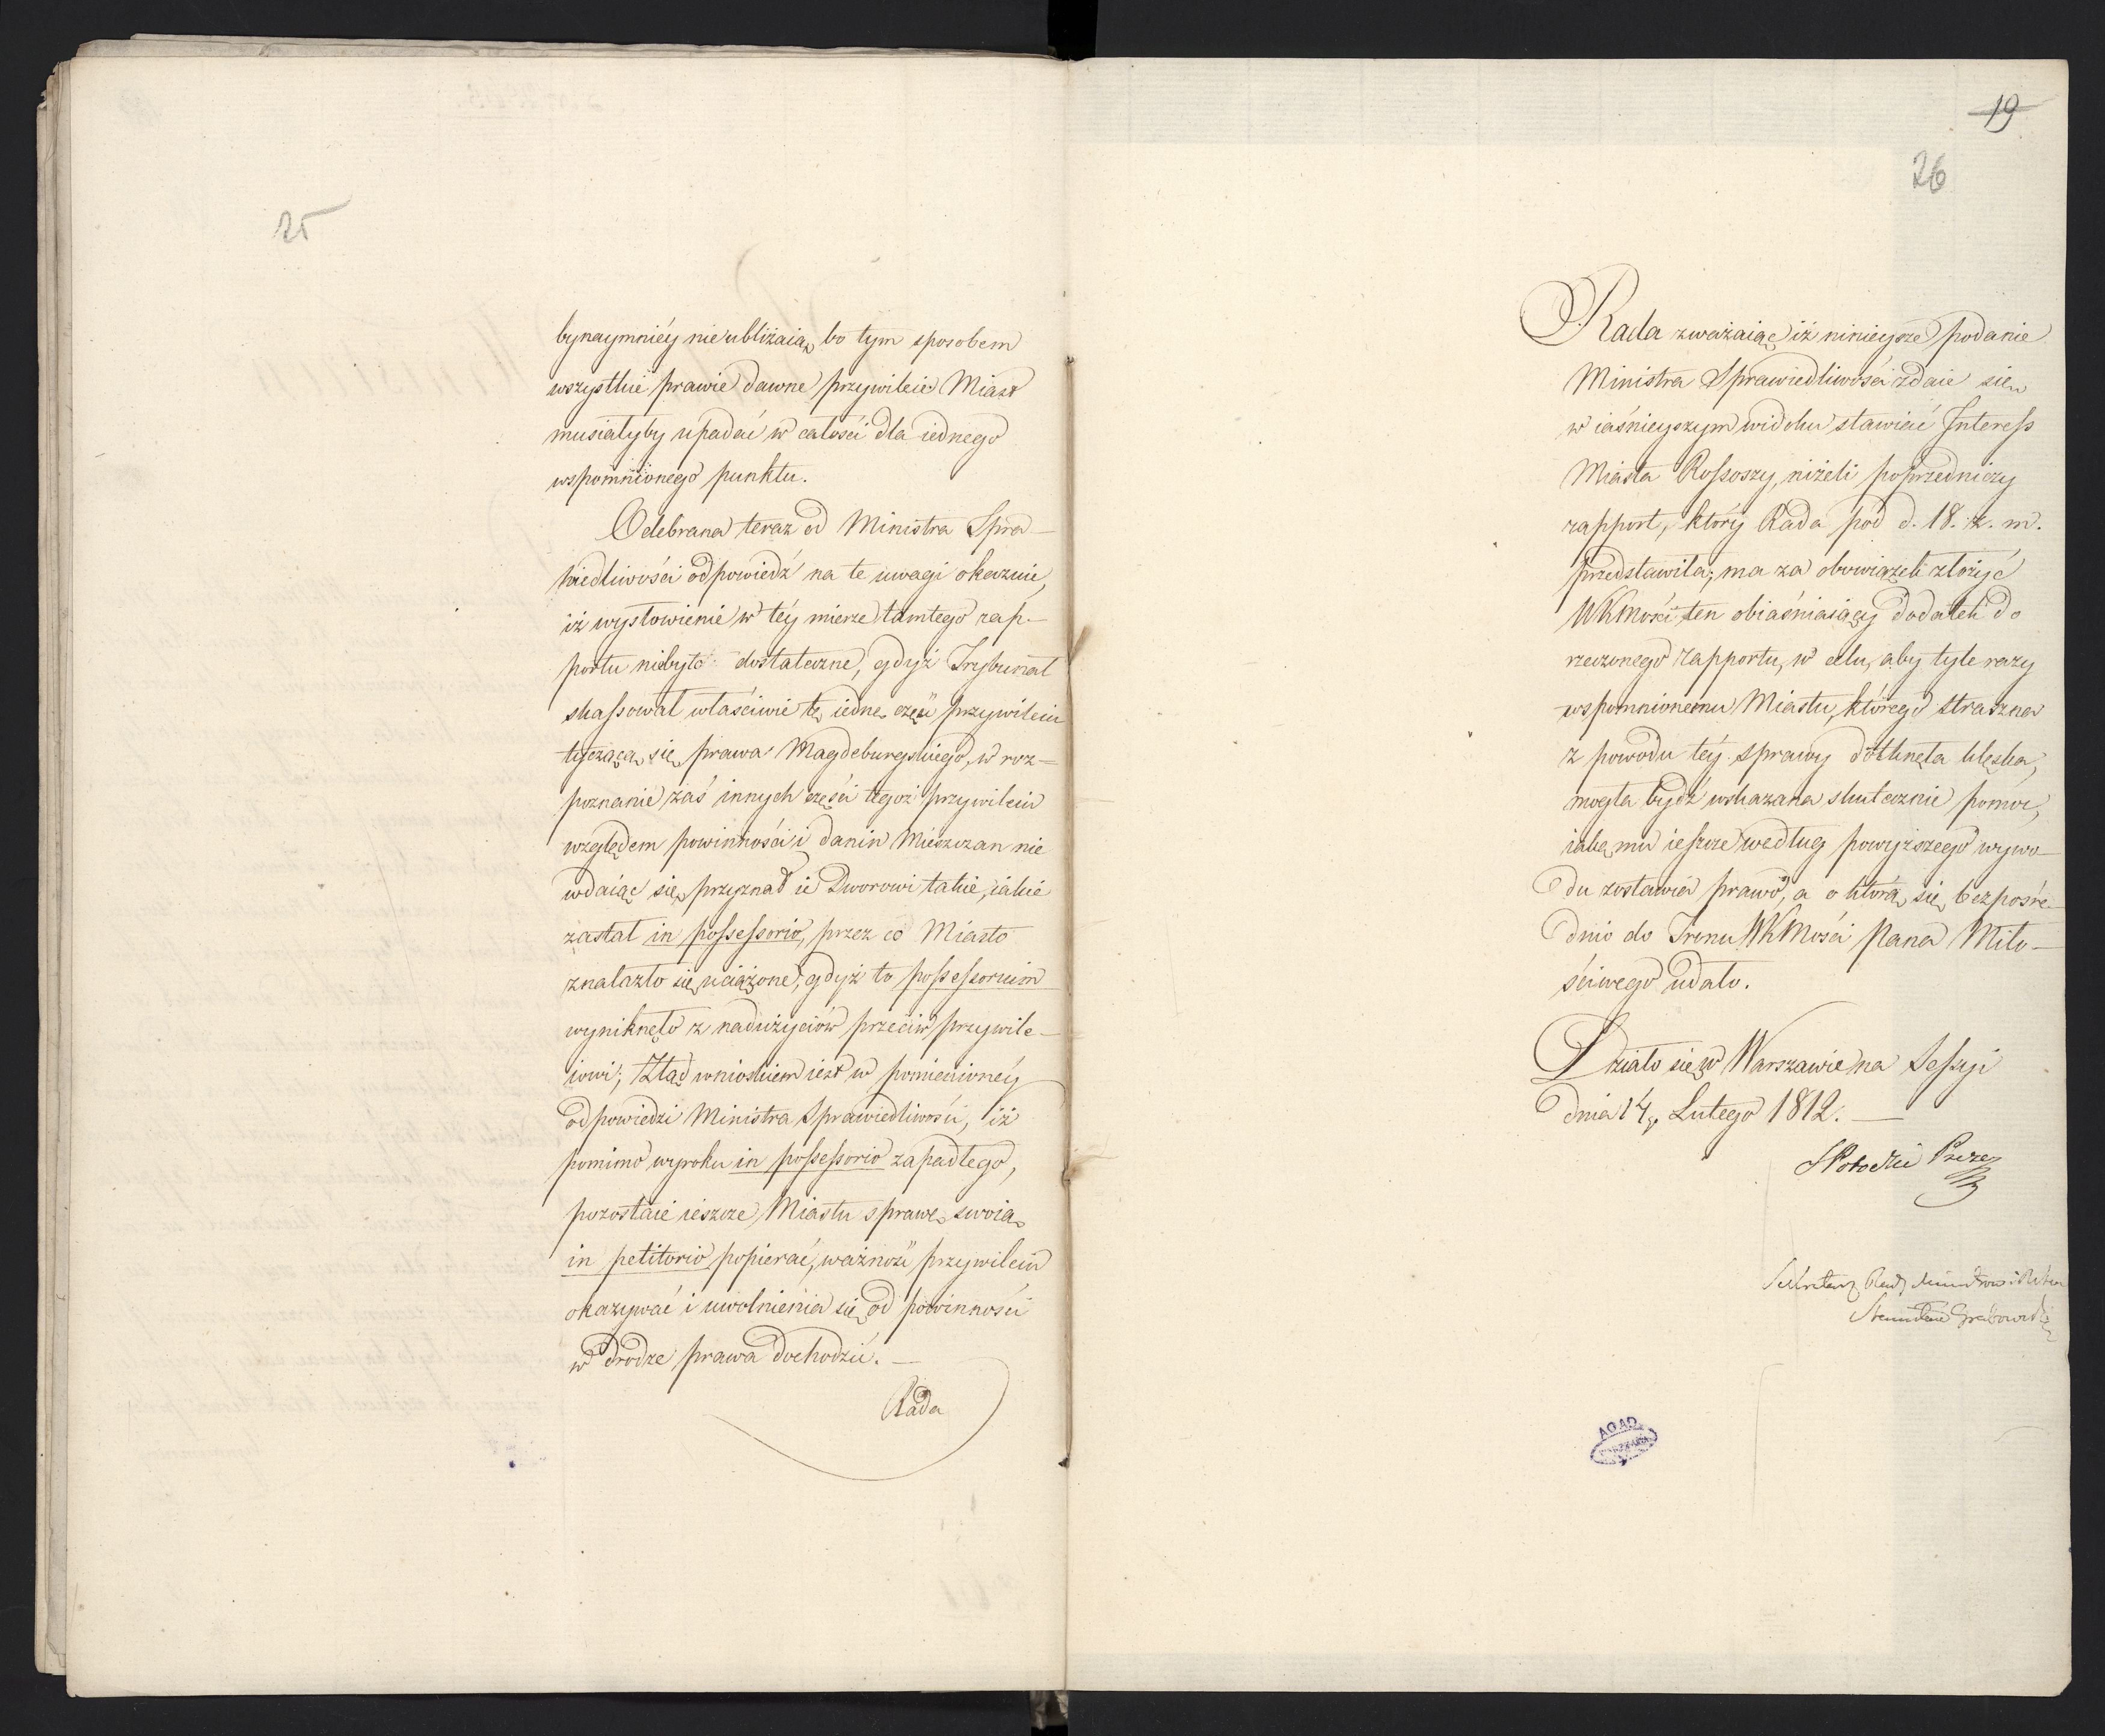 25
bynaymniéy nie ubliżaią, bo tym sposobem
wszystkie prawie dawne przywileie Miast
musiałyby upadać w całości dla iednego
wspomnionego punktu.
Odebrana teraz od Ministra Spra-
wiedliwości odpowiedź na te uwagi okazuie,
iż wysłowienie w téy mierze tamtego rap-
portu niebyło dostateczne, gdyż Trybunał
skassował właściwie tę iednę część przywileiu
tyczącą się prawa Magdeburgskiego, w roz-
poznanie zaś innych części tegoż przywileiu
względem powinności i danin Mieszczan nie
wdaiąc się, przyznał ie Dworowi takie, iakie
zastał in possessorio, przez co Miasto
znalazło się uciążone; gdyż to possessorium
wyniknęło z nadużyciów przeciw przywile-
iowi; Ztąd wnioskiem iest w pomienionéy
odpowiedzi Ministra Sprawiedliwości, iż
pomimo wyroku in possessorio zapadłego,
pozostaie ieszcze Miastu sprawę swoią
in petitorio popierać, ważność przywileiu
okazywać i uwolnienia się od powinności
w drodze prawa dochodzić. —
Rada
19
26
Rada zważaiąc iż ninieysze podanie
Ministra Sprawiedliwości zdaie się
w iaśnieyszym widoku stawiać Interess
Miasta Rossoszy, niżeli poprzedniczy
rapport, który Rada pod d. 18. z. m.
przedstawiła; ma za obowiązek złożyć
WKMości ten obiaśniaiący dodatek do
rzeczonego rapportu, w celu, aby tyle razy
wspomnionemu Miastu, którego straszna
z powodu téy sprawy dotknęła klęska,
mogła bydź wskazana skutecznie pomoc,
iaką mu ieszcze według powyższego wywo-
du zostawia prawo, a o którą się bezpośre-
dnio do Tronu WKMości Pana Miło-
ściwego udało.
Działo się w Warszawie na Sessyi
dnia 14. Lutego 1812. —
SPotocki Prezes
Sekretarz Rady Ministrów
Stanisław Grabowski
AGAD